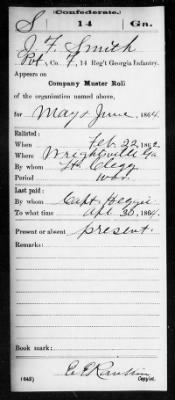 (Confederate.)
S 14 Ga.
J. F. Smith
Pvt, Co. F, 14 Reg't Georgia Infantry.
Appears on
Company Muster Roll
of the organization named above,
for May & June, 1864.
Enlisted:
When Feb 22, 1862.
Where Wrightsville Ga
By whom Lt. Clegg
Period war.
Last paid:
By whom Capt
To what time Apl 30, 1864.
Present or absent present.
Remarks:
Book mark:
(642) Copyist.